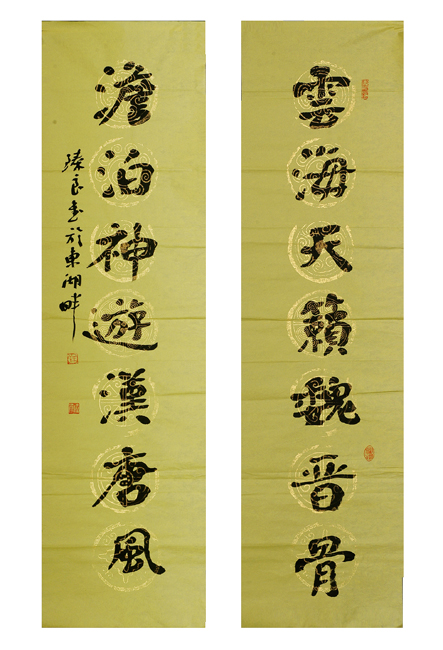 雲海天籟魏晋骨
澹泊神遊漢唐風
臻良書於東湖畔